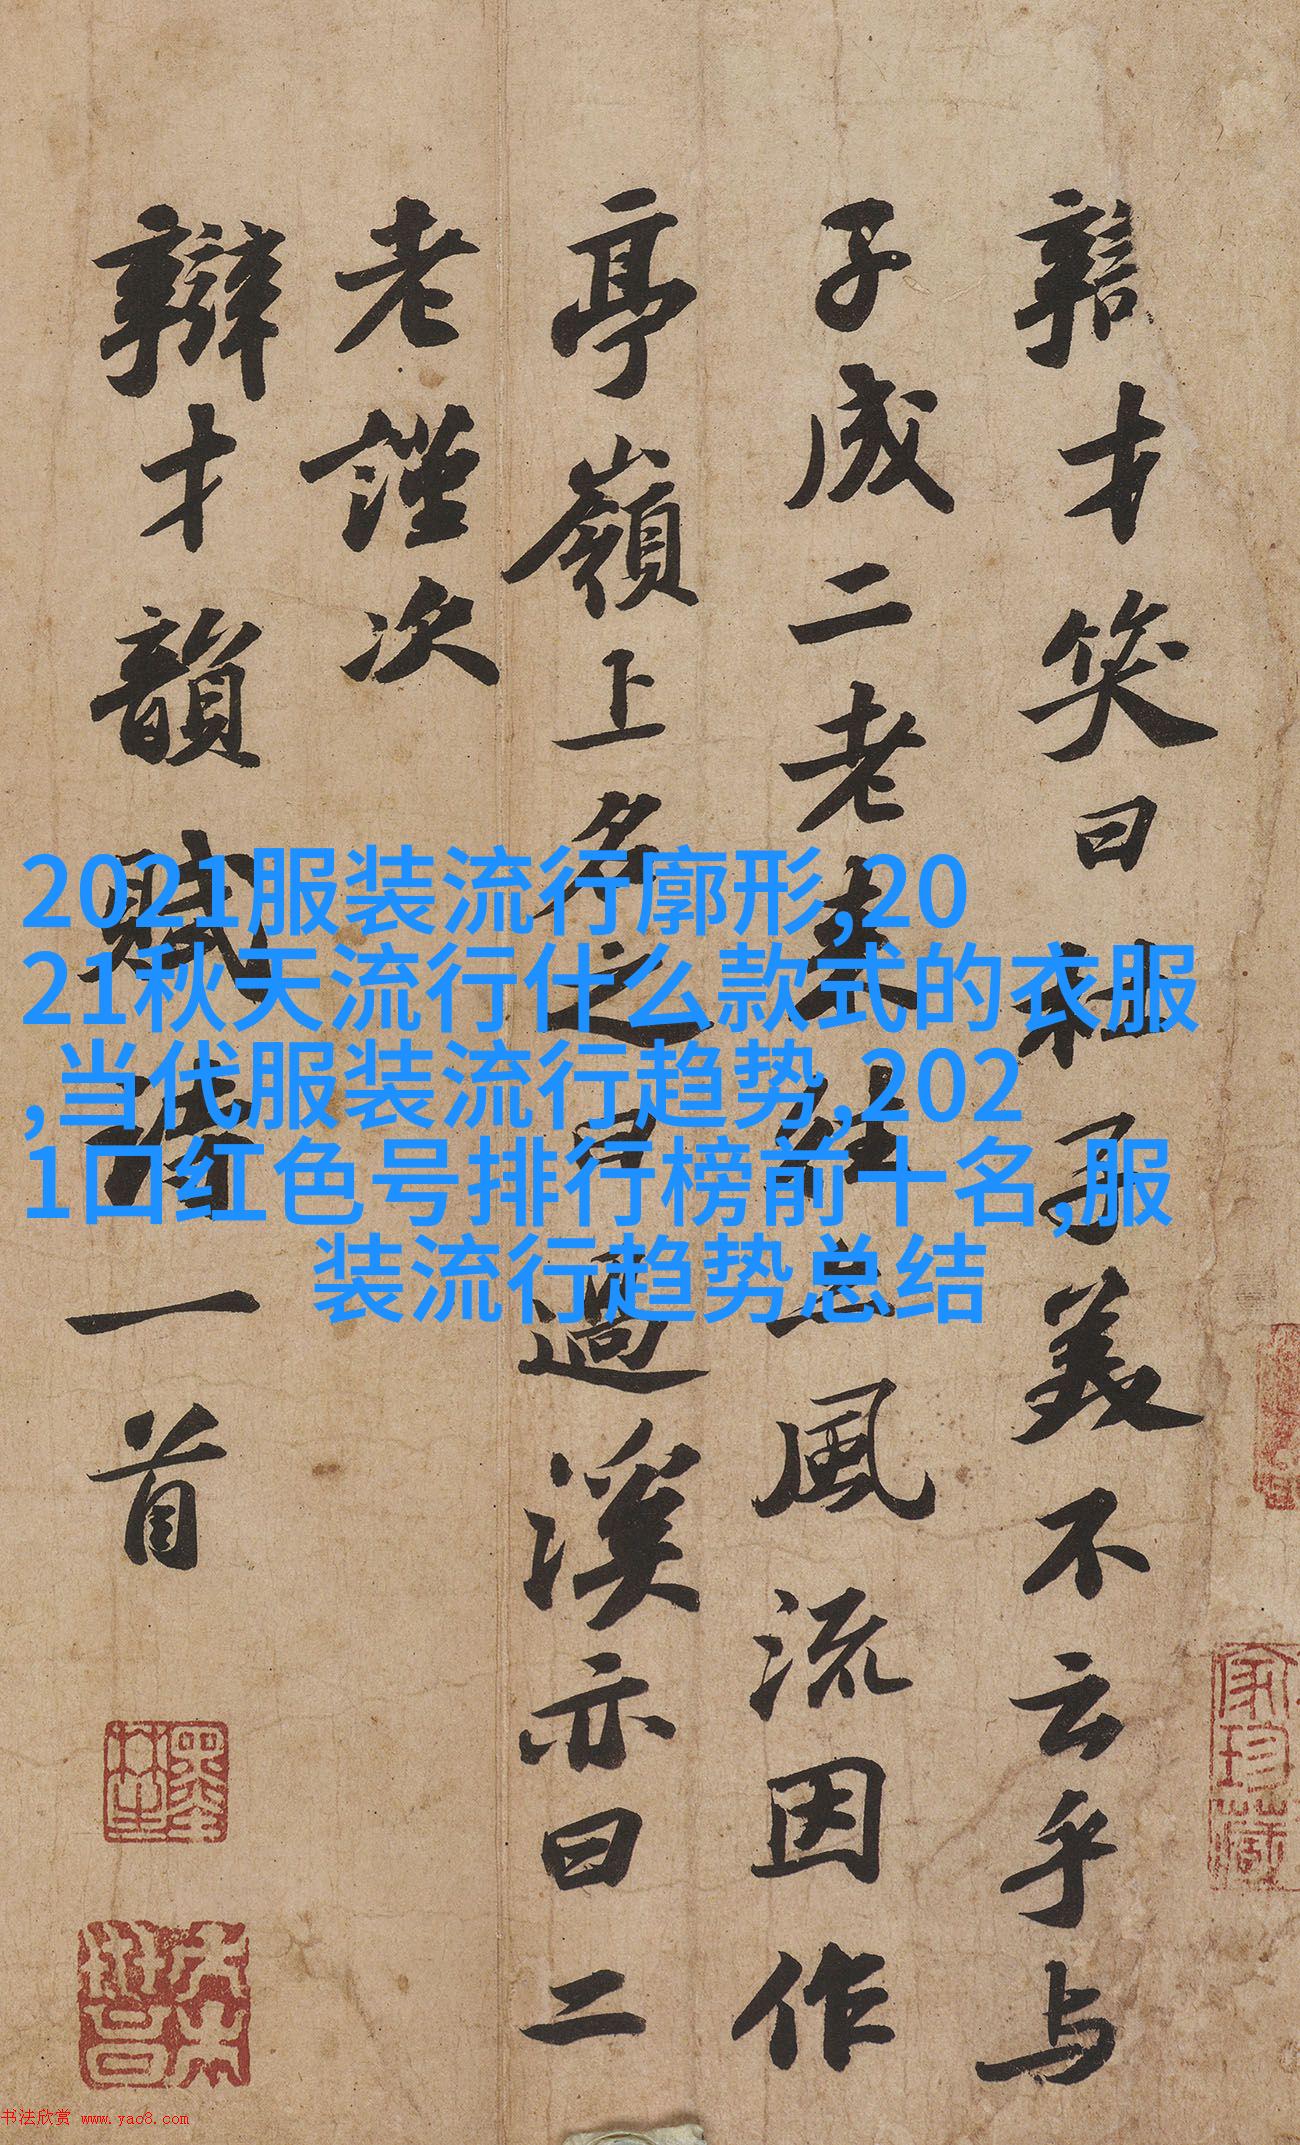 辯才笑曰杜子美不云乎与
子成二老来往亦風流因作
亭嶺上名之曰過溪亦曰二
老謹次
辯才韻賦詩一首
2021服装流行廓形,20
21秋天流行什么款式的衣服
,当代服装流行趋势,202
1口红色号排行榜前十名,服
装流行趋势总结
家珍藏
书法欣赏 www.yac8.com